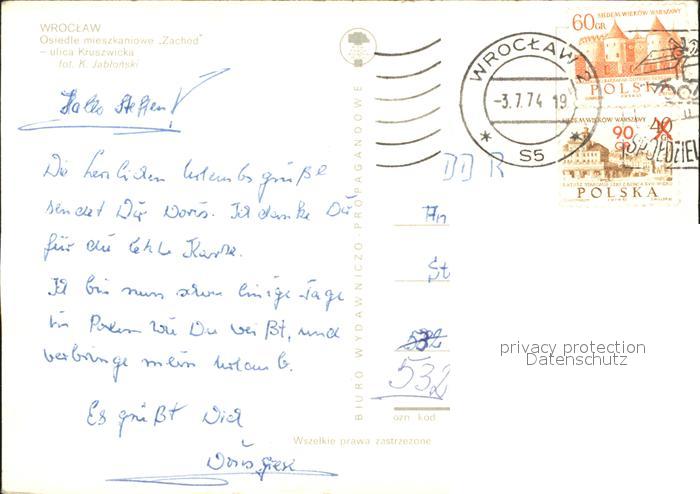 WROCŁAW
Osiedle mieszkaniowe „Zachod"
– ulica Kruszwicka
fot. K. Jabłoński
Hallo Steffen!
Die herzlichen Urlaubsgrüße
sendet Dir Doris. Ich danke Dir
für die letzte Karte.
Ich bin nun schon einige Tage
in Polen wie Du weißt, und
verbringe mein Urlaub.
Es grüßt Dich
Doris
BIURO WYDAWNICZO-PROPAGANDOWE
WROCŁAW 2
-3.7.74 19
S5
60GR
SIEDEM WIEKÓW WARSZAWY
POLSKA
SIEDEM WIEKÓW WARSZAWY
90 GR
40 GR
POLSKA
DDR
An
St
532
532
ozn kod
Wszelkie prawa zastrzeżone
privacy protection
Datenschutz